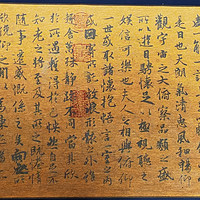 是日也天朗氣清惠風和暢仰
觀宇宙之大俯察品類之盛
所以遊目騁懷足以極視聽之
娛信可樂也夫人之相與俯仰
一世或取諸懷抱悟言一室之內
或因寄所託放浪形骸之外雖
趣舍萬殊靜躁不同當其欣
於所遇暫得於己快然自足不
知老之將至及其所之既倦情
隨事遷感慨係之矣向之所
欣俛仰之間以為陳迹